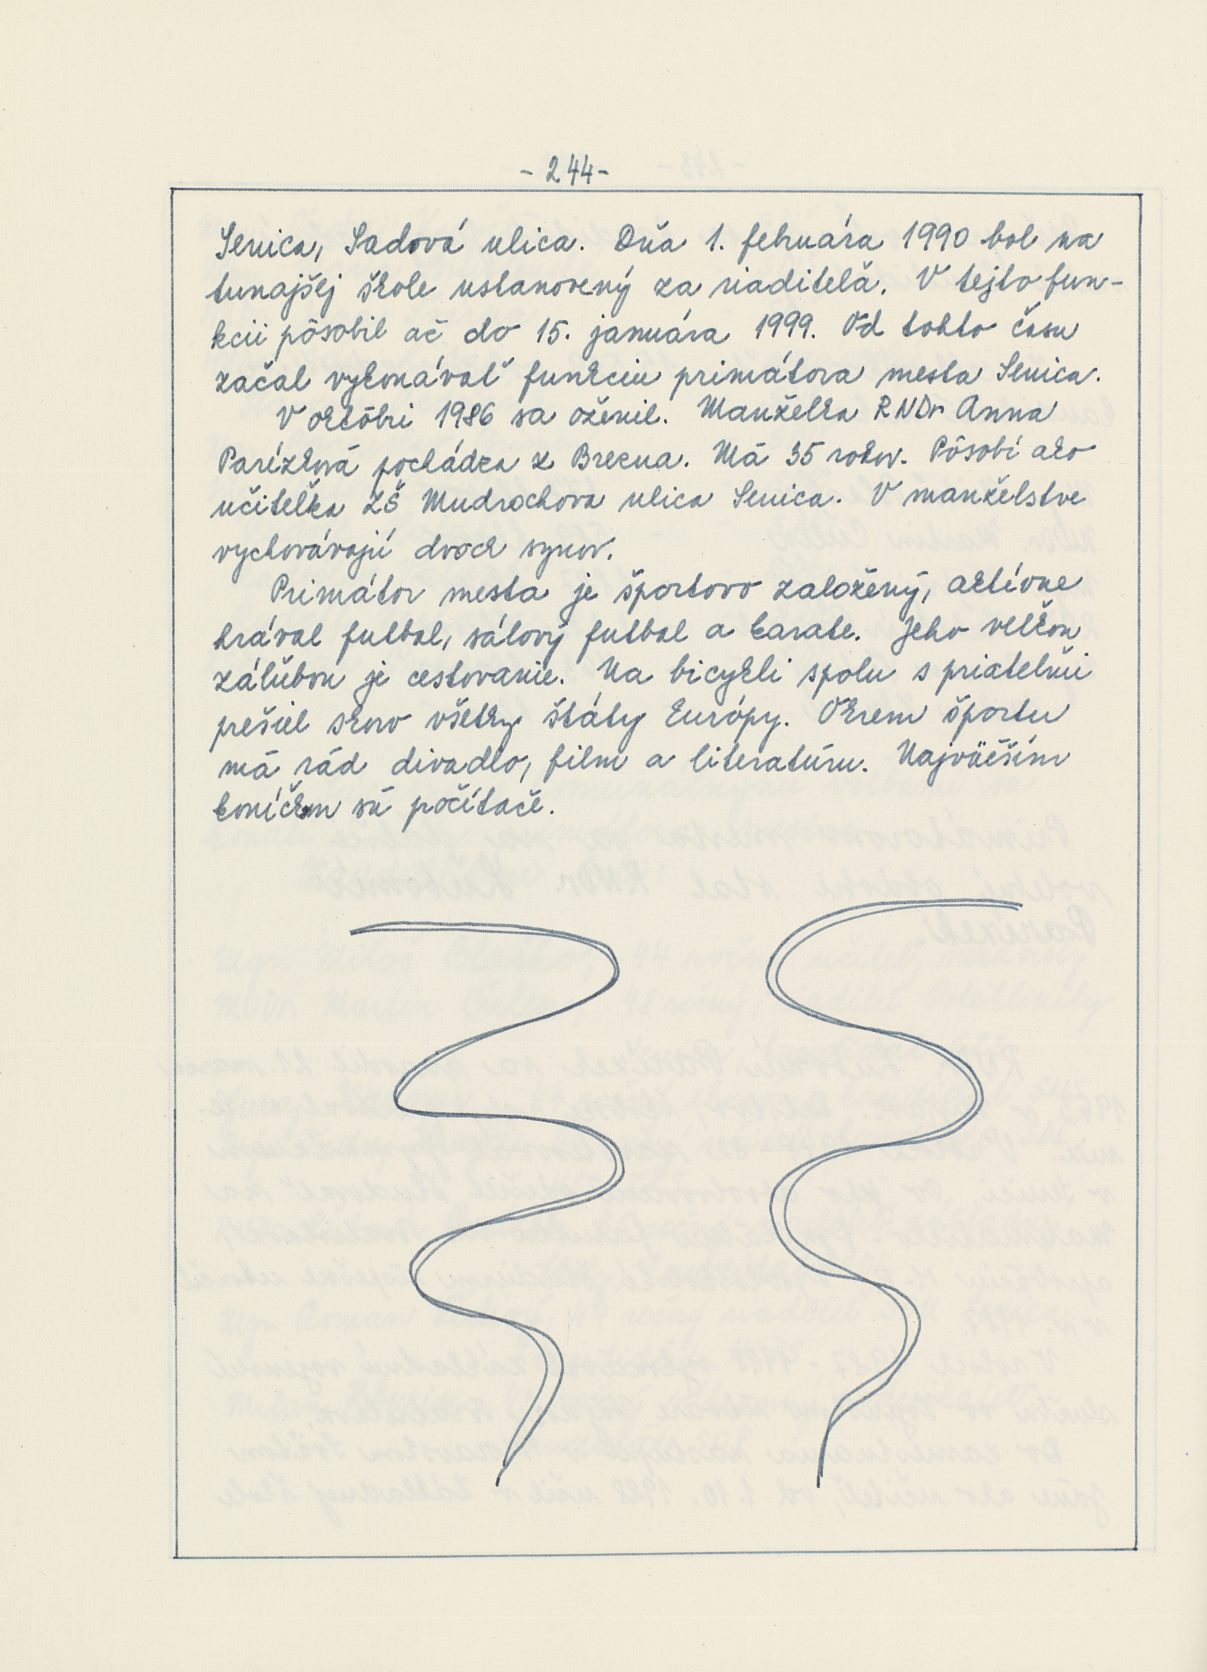 - 244 -
Senica, Sadová ulica. Dňa 1. februára 1990 bol na
tunajšej škole ustanovený za riaditeľa. V tejto fun-
kcii pôsobil až do 15. januára 1999. Od tohto času
začal vykonávať funkciu primátora mesta Senica.
V októbri 1986 sa oženil. Manželka RNDr Anna
Parízková pochádza z Brezna. Má 35 rokov. Pôsobí ako
učiteľka ZŠ Mudrochova ulica Senica. V manželstve
vychovávajú dvoch synov.
Primátor mesta je športovo založený, aktívne
hrával futbal, sálový futbal a karate. Jeho veľkou
záľubou je cestovanie. Na bicykli spolu s priateľmi
prešiel skoro všetky štáty Európy. Okrem športu
má rád divadlo, film a literatúru. Najväčším
koníčkom sú počítače.